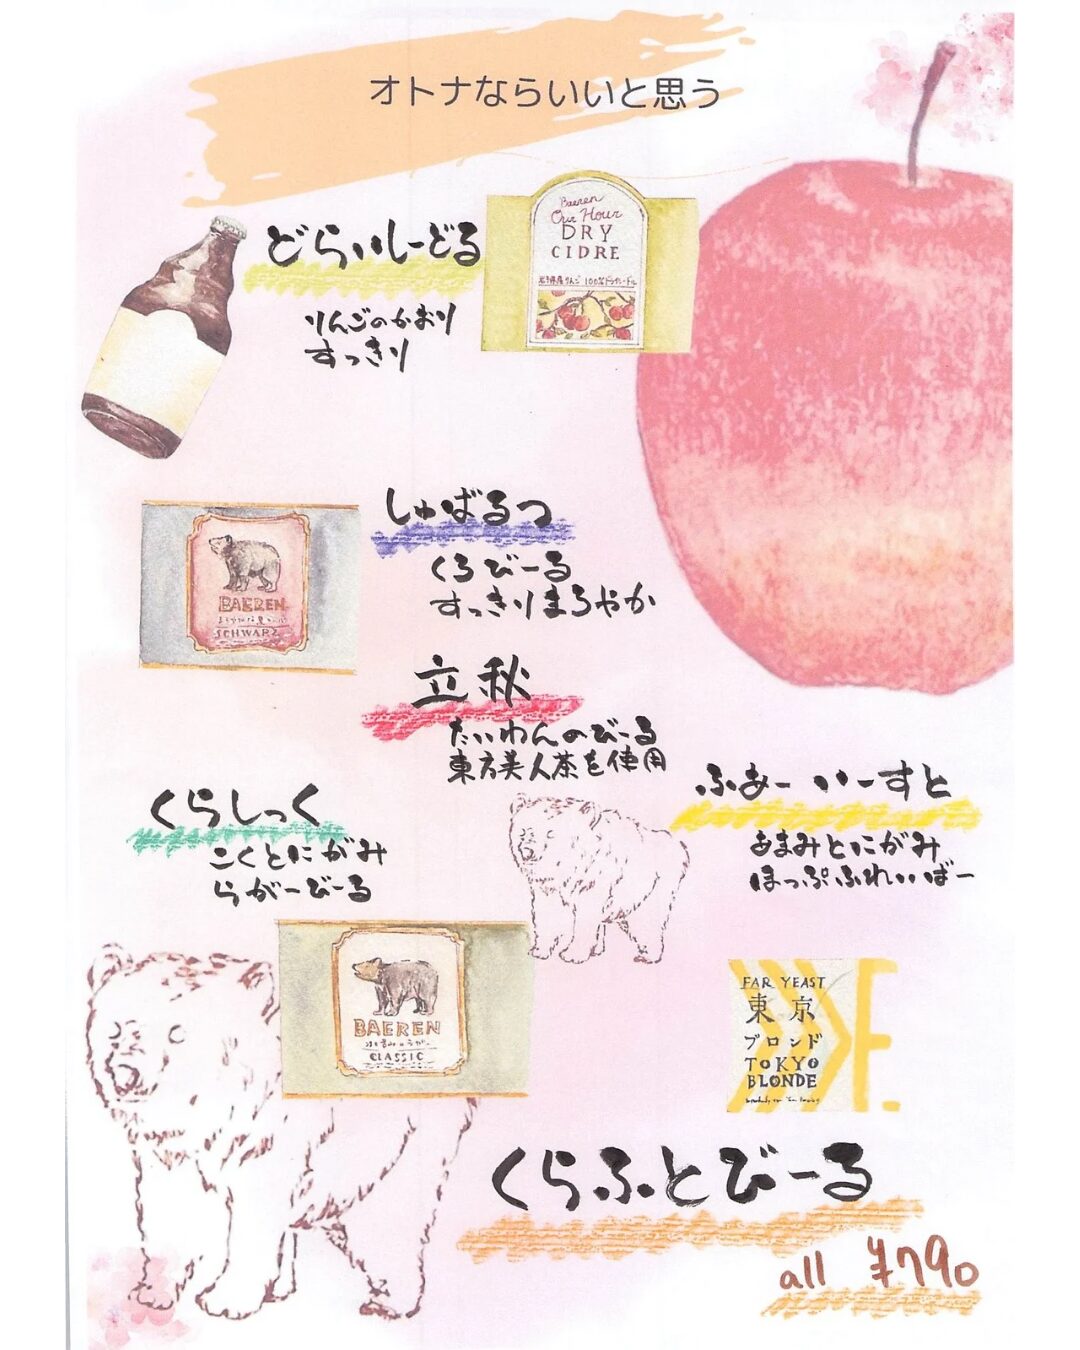 オトナならいいと思う
どらいしーどる
りんごのかおり
すっきり
Baeren
Our Hour
DRY
CIDRE
岩手県産りんご 100%ドライシードル
しゅばるつ
くろびーる
すっきりまろやか
BAEREN
SCHWARZ
立秋
たいわんのびーる
東方美人茶を使用
くらしっく
こくとにがみ
らがーびーる
ふぁー いーすと
あまみとにがみ
ほっぷふれいばー
BAEREN
CLASSIC
FAR YEAST
東京
ブロンド
TOKYO
BLONDE
くらふとびーる
all ¥790